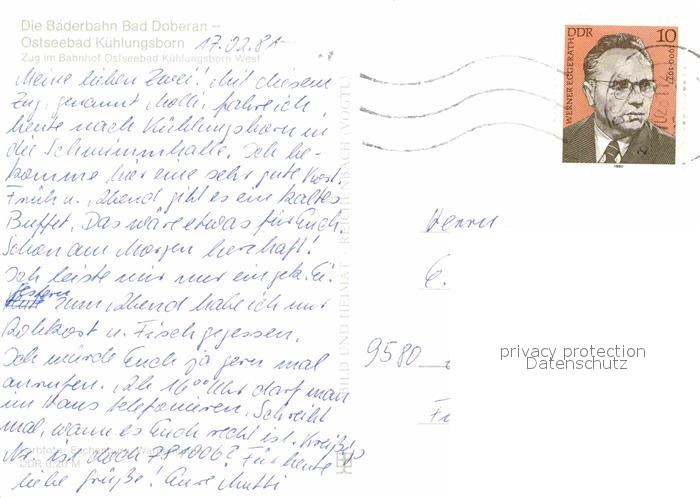 Die Bäderbahn Bad Doberan –
Ostseebad Kühlungsborn 17.02.81
Zug im Bahnhof Ostseebad Kühlungsborn West
Meine lieben Zwei! Mit diesem
Zug, genannt Molli, fahre ich
heute nach Kühlungsborn in
die Schwimmhalle. Ich be-
komme hier eine sehr gute Kost.
Früh u. Abend gibt es ein kaltes
Buffet. Das wäre etwas für Euch.
Schon am Morgen herzhaft!
Ich leiste mir nur ein gek. Ei.
Gestern zum Abend habe ich nur
Rohkost u. Fisch gegessen.
Ich würde Euch ja gern mal
anrufen. Ab 16°° Uhr darf man
im Haus telefonieren. Schreibt
mal, wann es Euch recht ist.
Nr. ist doch 7810062? Für heute
liebe Grüße! Eure Mutti
DDR 0,20 M
BILD UND HEIMAT REICHENBACH (VOGTL)
DDR 10
WERNER EGGERATH
1900-1977
1980
Herrn
E.
9580
privacy protection
Datenschutz